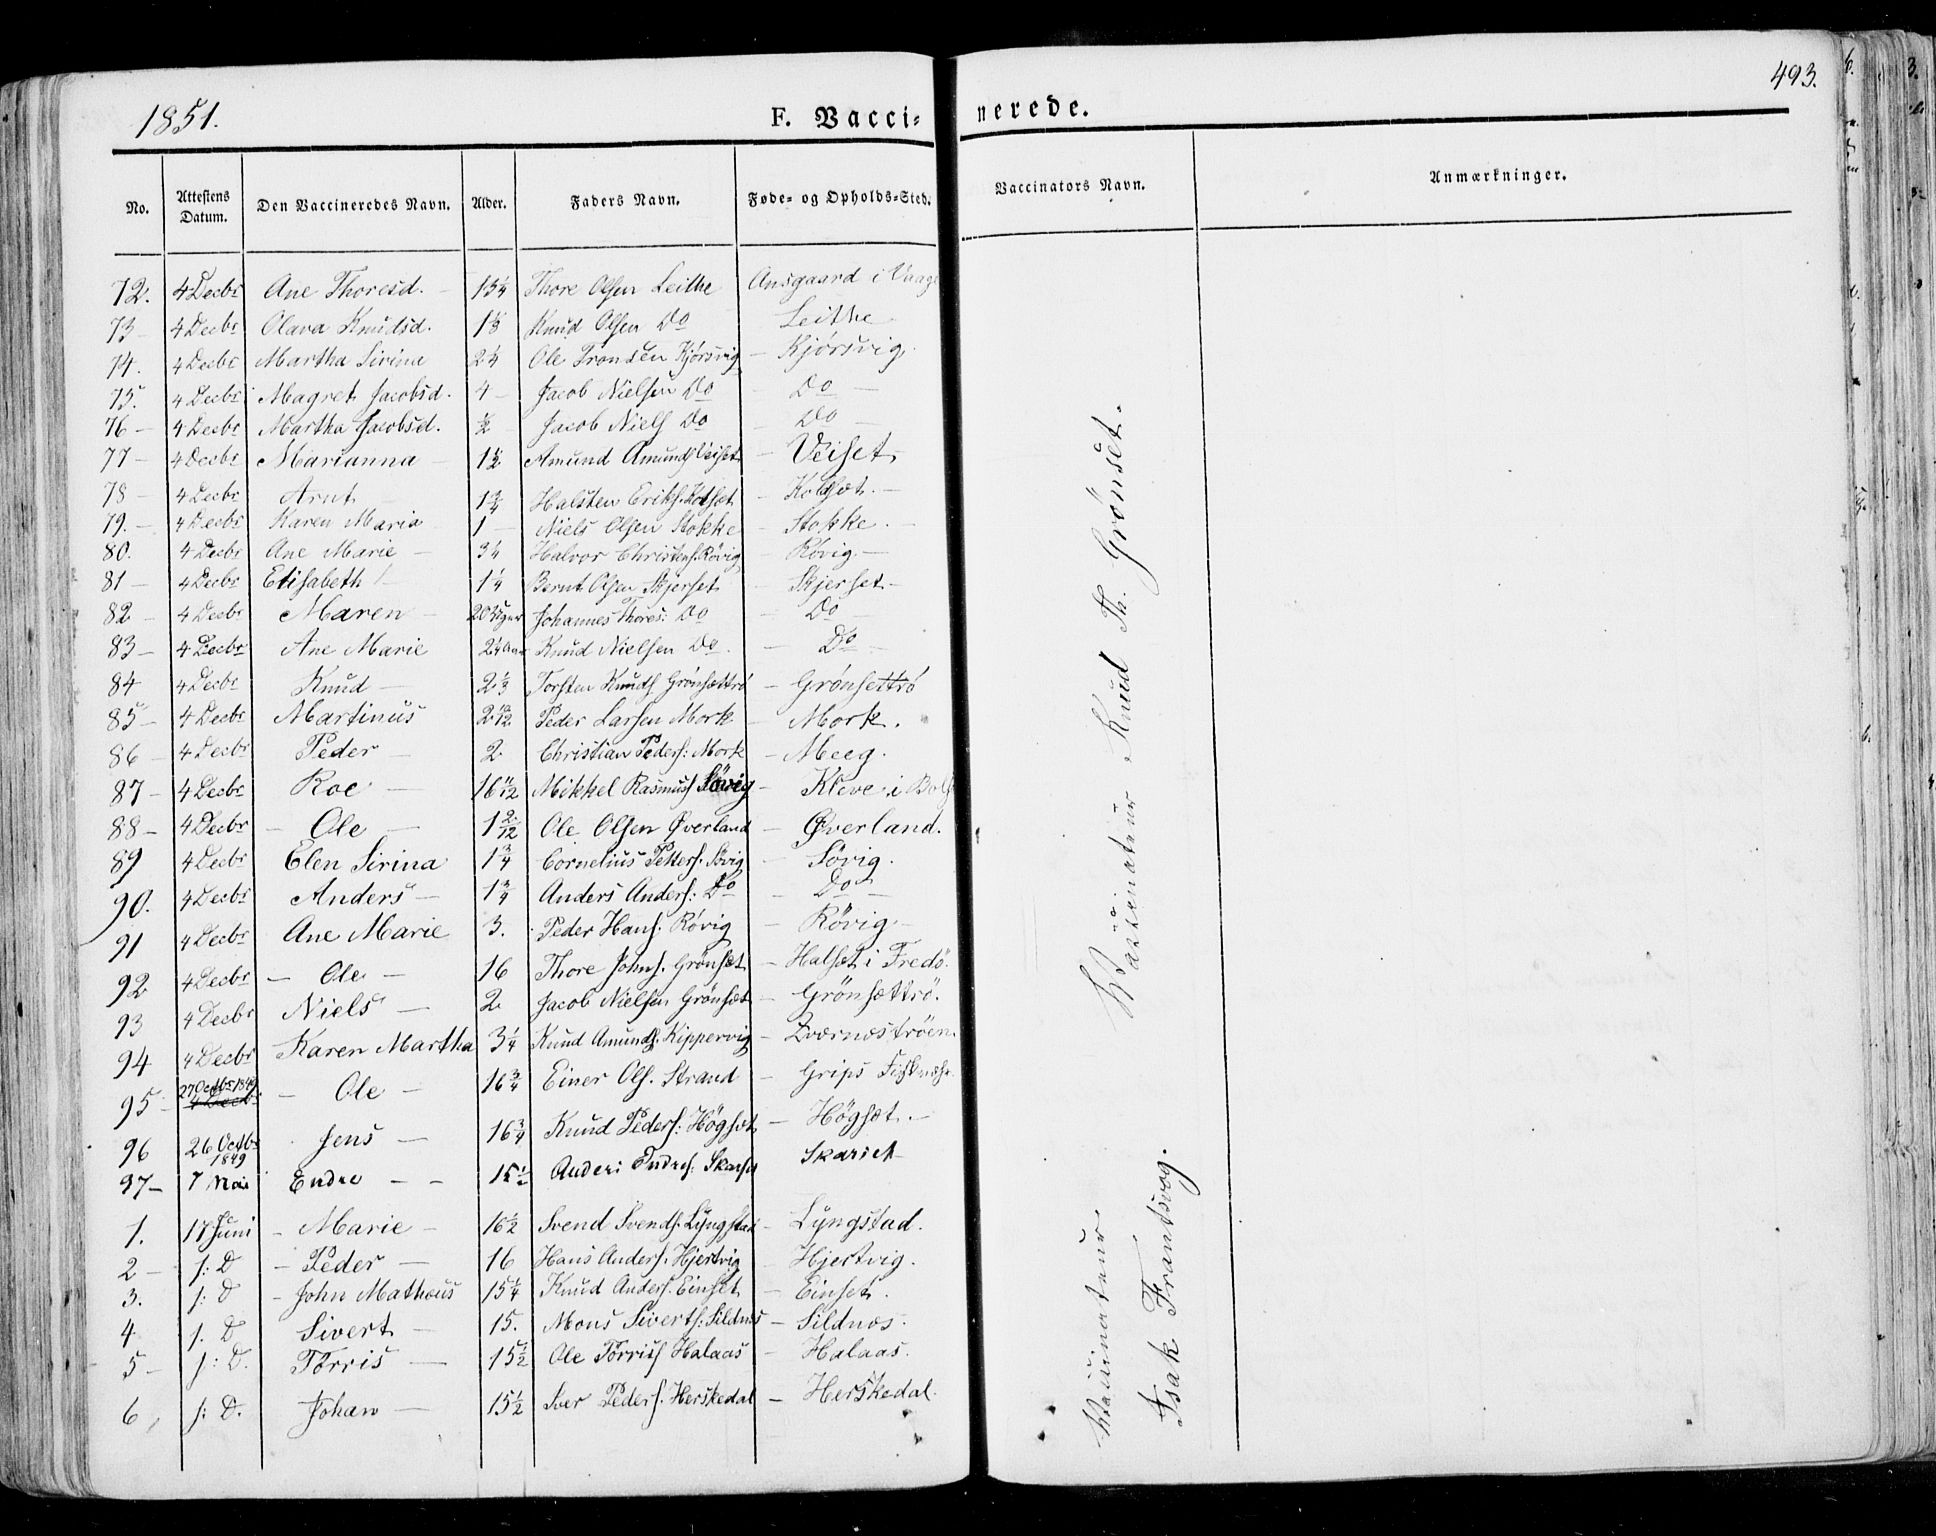 1851.
F. Vaccinerede.
493.
No. Attestens Datum. Den Vaccineredes Navn. Alder. Faders Navn. Føde- og Opholds-Sted. Vaccinators Navn. Anmærkninger.
72. 4 Decbr Ane Thoresd. 13¼ Thore Olsen Leithe Ansgaard i Vaage
73 - 4 Decbr Olava Knudsd. 1⅓ Knud Olsen Do Leithe
74. 4 Decbr Martha Sirina 2¼ Ole Tronsen Kjörsvig - Kjörsvig.
75. 4 Decbr Magret Jacobsd. 4 - Jacob Nielsen Do - Do -
76 - 4 Decbr Martha Jacobsd. ½ Jacob Niels Do - Do -
77 - 4 Decbr Marianna - 1½ Amund Amunds Veiset - Veiset,
78 - 4 Decbr Arnt - 1¾ Halsten Eriks. Kolsæt - Kolsæt. -
79. - 4 Decbr Karen Maria 1 - Niels Olsen Stokke - Stokke. -
80. 4 Decbr Ane Marie - ¾ Halvor Christens. Rövig - Rövig. -
81 - 4 Decbr Elisabeth - 1¼ Bernt Olsen Skjerset - Skjerset -
82 - 4 Decbr Maren - 20 Uger Johannes Thores: Do - Do -
83 - 4 Decbr Ane Marie 2¼ Aar Knud Nielsen Do. - Do -
84 4 Decbr Knud - 2⅓ Torsten Knuds Grönsættrö - Grönsettrö
85 - 4 Decbr Martinus 2 10/12 Peder Larsen Mork - Mork.
86 - 4 Decbr Peder - 2. Christian Peders: Mork - Meeg.
87 - 4 Decbr Roe - 16 11/12 Mikkel Rasmuss Sövig - Kleve i Bols
88 - 4 Decbr - Ole - 1 2/12 Ole Olsen Øverland - Øverland.
89 4 Decbr Elen Sirina 1¾ Cornelius Petters. Sövig - Sövig.
90. 4 Decbr Anders - 1¾ Anders Anders: Do - Do -
91 4 Decbr Ane Marie 3. Peder Hans. Rövig - Rövig. -
92 4 Decbr - Ole - 16 Thore Johns. Grönsæt - Halset i Fredö.
93 4 Decbr Niels - 2 Jacob Nielsen Grönsæt - Grönsættrö.
94 4 Decbr Karen Martha 3¼ Knud Amunds. Kippervig - Qværnæströen
95 - 27 Octbr 1849 4 Decbr - Ole - 16¾ Einer Ols. Strand - Grips Fiskevær
96 26 Octbr 1849 Jens - 16¾ Knud Peders: Högsæt - Högsæt. -
97 - 7 Mai Endre - - 15½ Anders Endres: Skarset Skarset
1. 17 Juni - Marie - 16½ Svend Svends. Lyngstad - Lyngstad.
2 - s: D - Peder - 16 Hans Anders. Hjertvig - Hjertvig.
3. s: D - John Mathæus 15¼ Knud Anders. Einset - Einset.
4 s. D Sivert - 15. Mons Siverts: Sildnæs - Sildnæs.
5 - s: D. Torris - 15½ Ole Torriss Halaas - Halaas.
6 , s: D. Johan - 15½ Iver Peders. Herskedal - Herskedal.
Vaccinateur Knud Th. Grönset.
Vaccinateur
Isak Frandsvog.